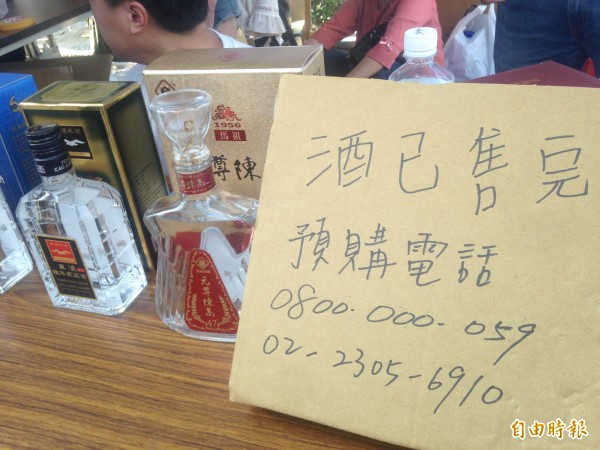 酒已售完
預購電話
0800-000-059
02-2305-6910
1956
馬祖
尊陳
元尊陳高
47
自由時報